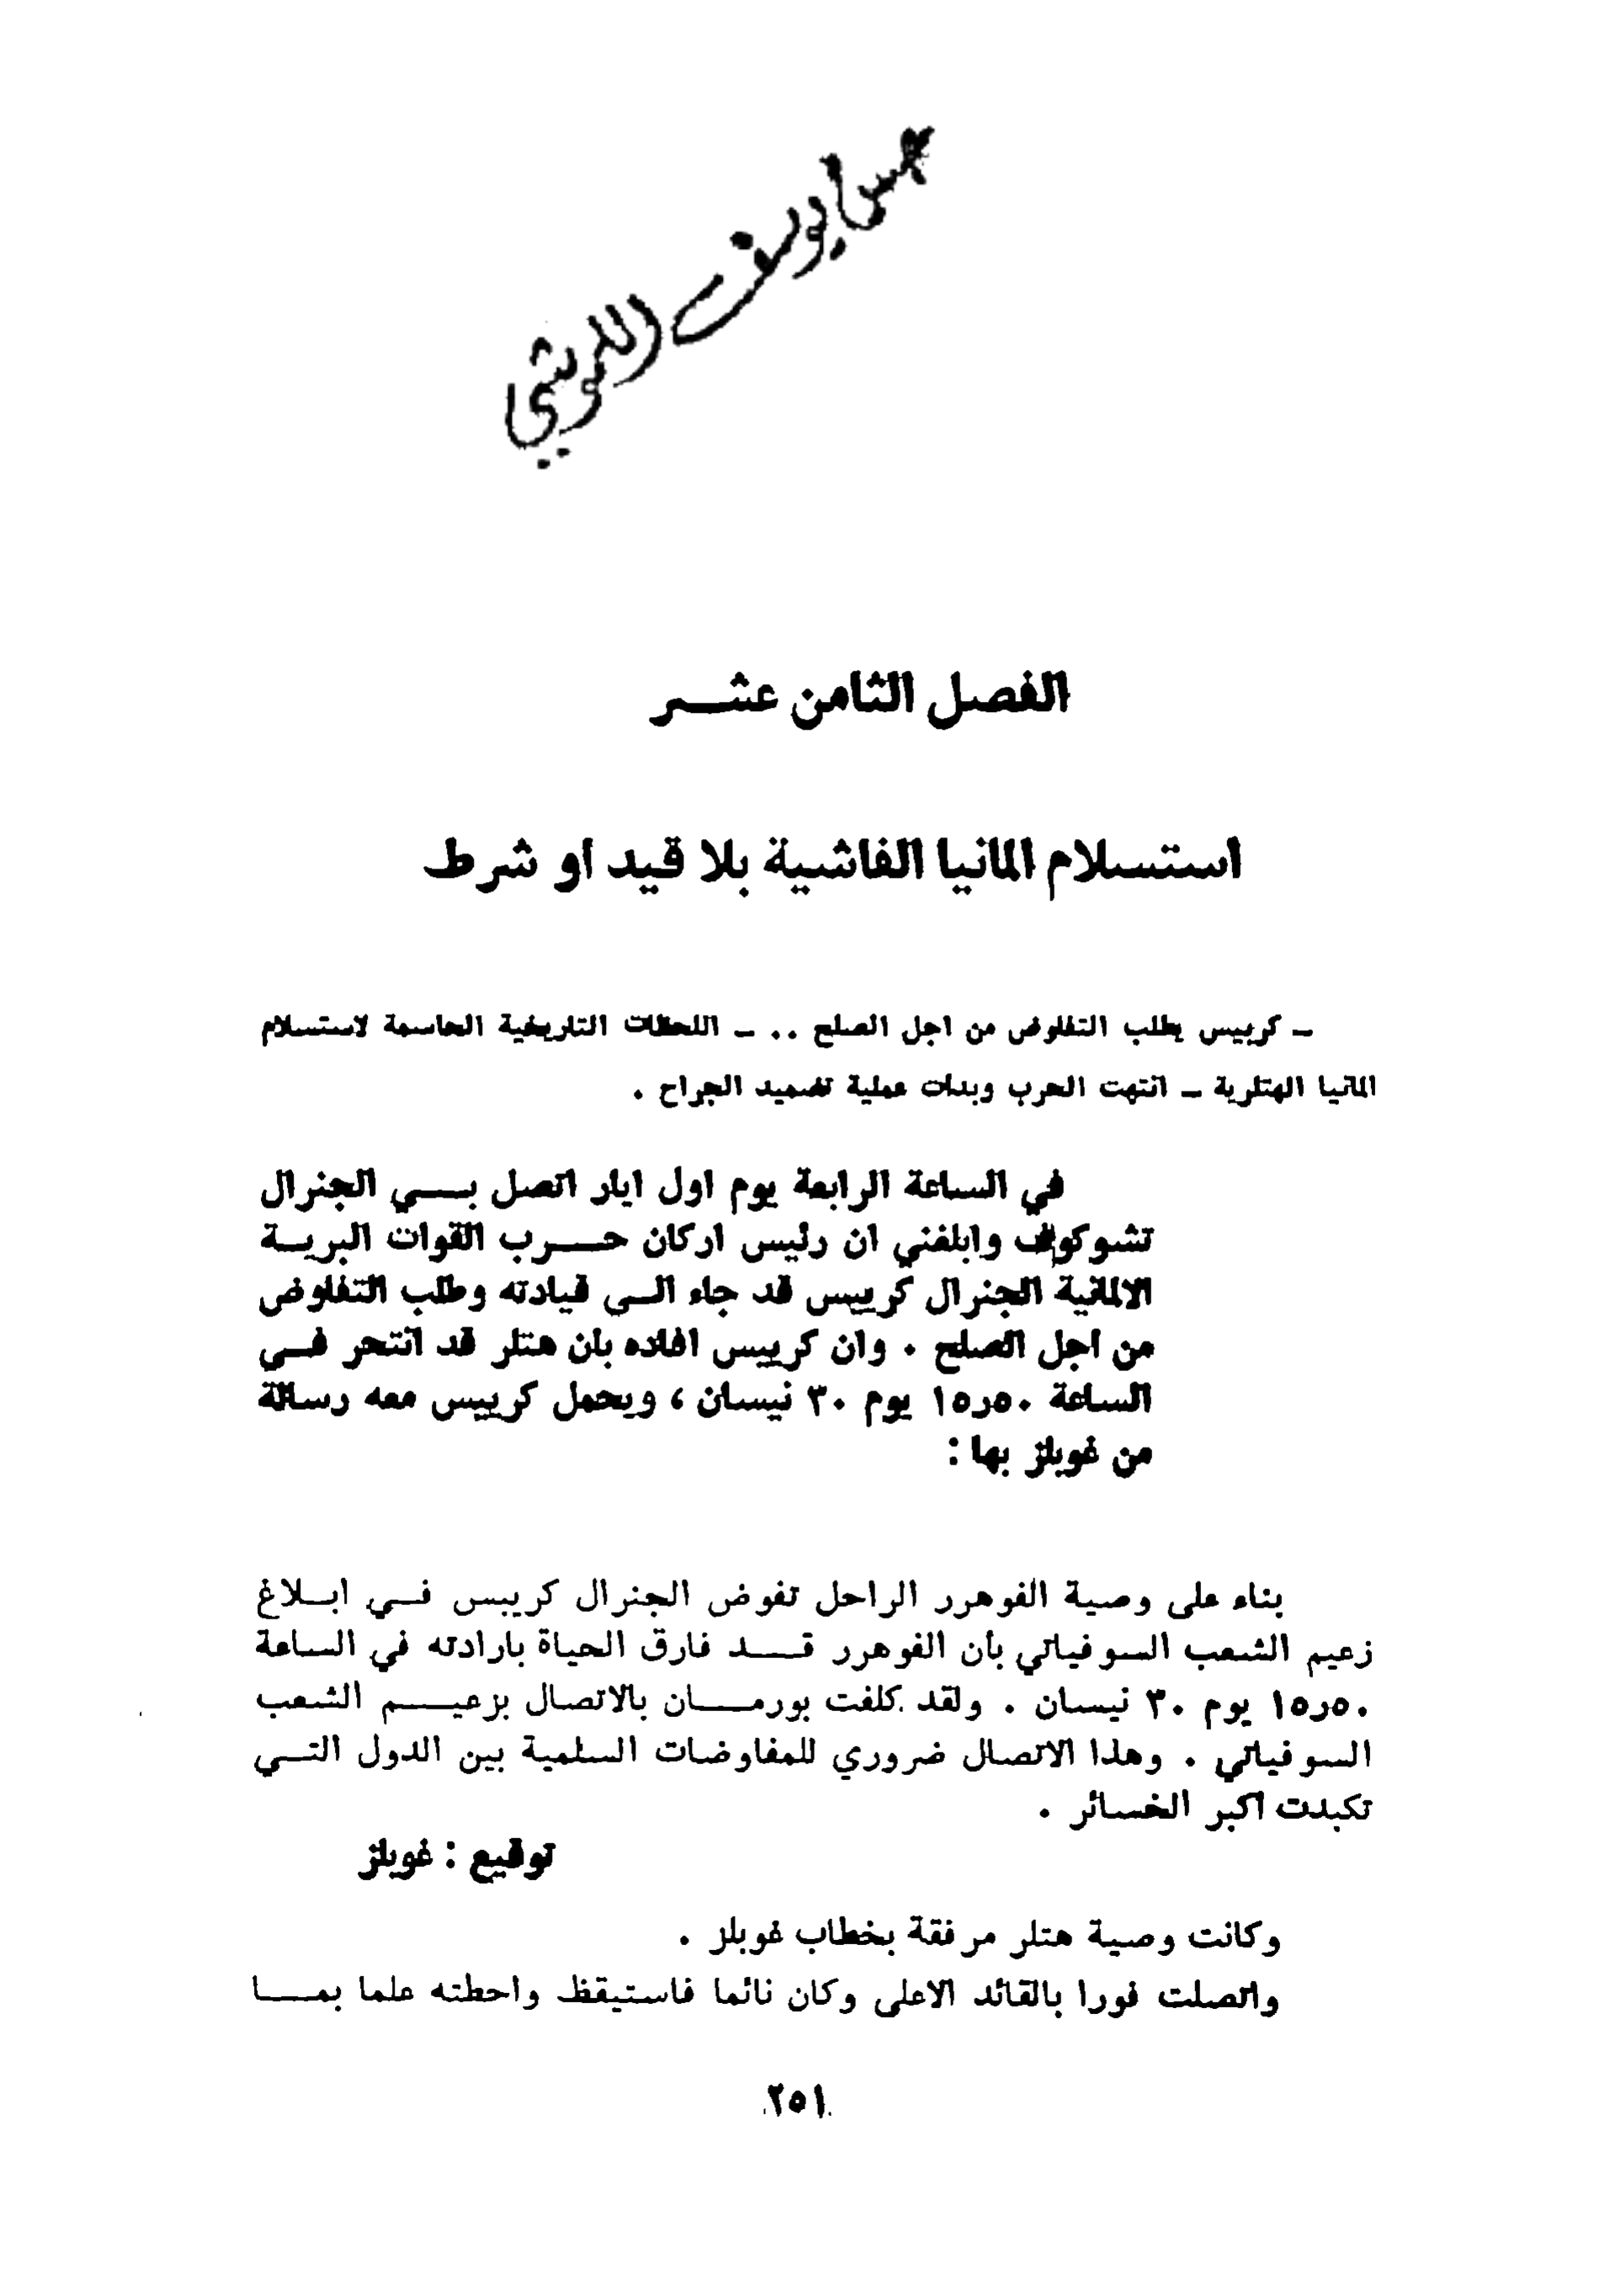 يوسف
الفصل الثامن عشـــر
استسلام المانيا الفاشية بلا قيد او شرط
ـ كريبس يطلب التفاوض من اجل الصلح .. ـ اللحظات التاريخية الحاسمة لاستسلام
المانيا الهتلرية ـ انتهت الحرب وبدات عملية تضميد الجراح .
في الساعة الرابعة يوم اول ايار اتصل بـــي الجنرال
تشوكوف وابلغني ان رئيس اركان حـــرب القوات البريـــة
الالمانية الجنرال كريبس قد جاء الـــى قيادته وطلب التفاوض
من اجل الصلح . وان كريبس افاده بان هتلر قد انتحر فـــي
الساعة ١٥٫٥٠ يوم ٣٠ نيسان ، ويحمل كريبس معه رسالة
من غوبلز بها :
بناء على وصية الفوهرر الراحل تفوض الجنرال كريبس فـــي ابـــلاغ
زعيم الشعب السوفياتي بأن الفوهرر قـــد فارق الحياة بارادته في الساعة
١٥٫٥٠ يوم ٣٠ نيسان . ولقد كلفت بورمـــان بالاتصال بزعيـــم الشعب
السوفياتي . وهذا الاتصال ضروري للمفاوضات السلمية بين الدول التـــي
تكبدت اكبر الخسائر .
توقيع : غوبلز
وكانت وصية هتلر مرفقة بخطاب غوبلز .
واتصلت فورا بالقائد الاعلى وكان نائما فاستيقظ واحطته علما بمـــا
٢٥١